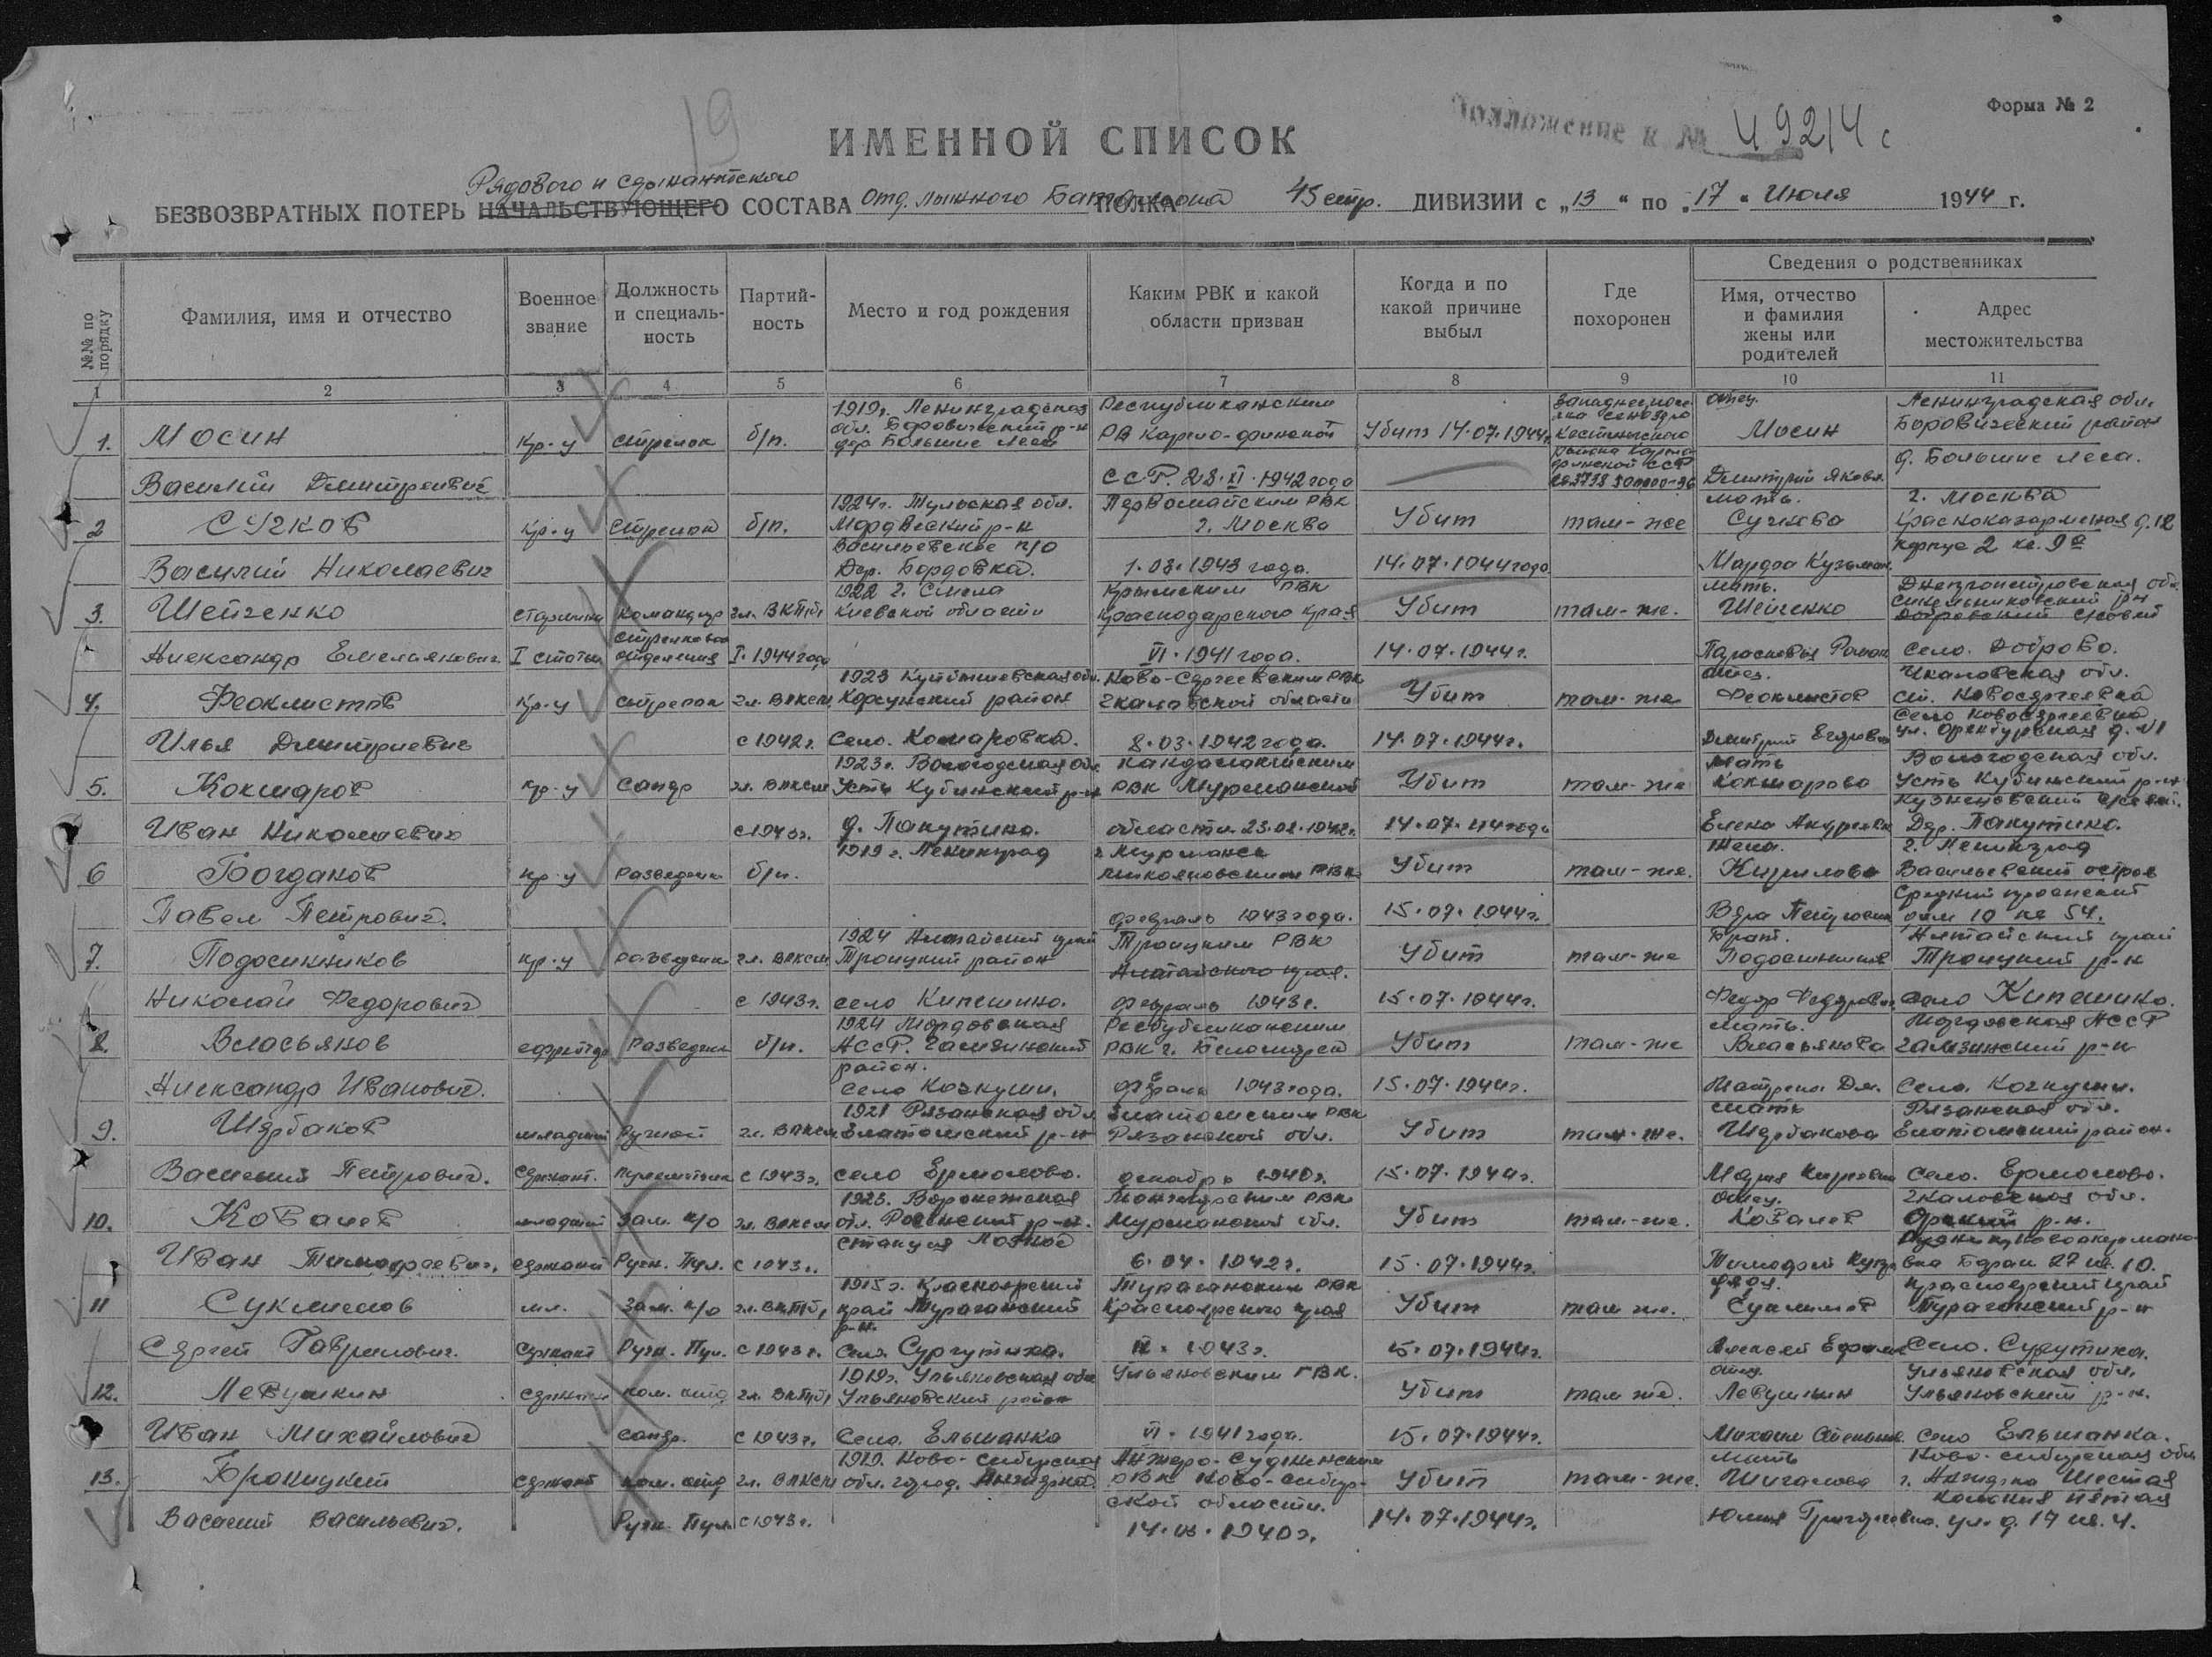 19
Приложение к № 49214 с
Форма № 2
ИМЕННОЙ СПИСОК
Рядового и сержантского
БЕЗВОЗВРАТНЫХ ПОТЕРЬ НАЧАЛЬСТВУЮЩЕГО СОСТАВА отд. лыжного Батальона ПОЛКА 45 стр. ДИВИЗИИ с „13“ по „17“ Июля 1944 г.
№№ по порядку
Фамилия, имя и отчество
Военное звание
Должность и специаль-
ность
Партий-
ность
Место и год рождения
Каким РВК и какой
области призван
Когда и по
какой причине
выбыл
Где
похоронен
Сведения о родственниках
Имя, отчество
и фамилия
жены или
родителей
Адрес
местожительства
1 2 3 4 5 6 7 8 9 10 11
1919г. Ленинградская Республиканским отец. Ленинградская обл.
1. Мосин Кр-ц стрелок б/п. обл. Боровический р-н дер Большие Леса РВ Карело-финской Убит 14.07.1944г. Мосин Боровический район
Василий Дмитриевич ССР. 28.XI.1942 года Дмитрий Яковл. д. Большие Леса.
1924г. Тульская обл. Первомайским РВК мать. г. Москва
2 Сучков Кр-ц стрелок б/п. Мордвеский р-н г. Москва Убит там-же Сучкова Красноказарменная д.12
Василий Николаевич Васильевское п/о Дер. Бордовка. 1.03.1943 года. 14.07.1944 года Марфа Кузьмин. корпус 2 кв. 9а
1922 г. Смела Крымским РВК мать. Днепропетровская обл.
3. Шейченко старшина командир чл. ВКП(б) Киевской области Краснодарского края Убит там-же. Шейченко Синельниковский р-н
Александр Емельянович I статьи отделения I.1944 года VI.1941 года. 14.07.1944г. Село. Доброво.
1923 Куйбышевская обл. Ново-Сергеевским РВК отец. Чкаловская обл.
4. Феоклистов Кр-ц стрелок чл. ВЛКСМ Корсунский район Чкаловской области Убит там-же Феоклистов ст. Новосергеевка
Село Новосергеевка
Илья Дмитриевич с 1942г. Село. Комаровка. 8.03.1942 года. 14.07.1944г. Дмитрий Егорович
1923г. Вологодская обл. Кандалакшским мать Вологодская обл.
5. Кокшаров Кр-ц Санор чл. ВЛКСМ Усть Кубинский р-н РВК Мурманской Убит там-же Кокшарова Усть Кубинский р-н
Иван Николаевич д. Пакутино. области 14.07.44 года Елена Андреевн Дер. Пакутино.
1919г. Ленинград г Мурманск жена. г. Ленинград
6 Богданов кр-ц разведчик б/п. Убит там-же. Кирилова Васильевский остров
Павел Петрович. февраль 1943 года. 15.07.1944г. Вера Петровна дом 10 кв 54.
1924 Алтайский край Троицким РВК брат. Алтайский край
7. Подосинников кр-ц разведчик чл. ВЛКСМ Троицкий район Алтайского края. Убит там-же Подосинников Троицкий р-н
Николай Федорович с 1943г. село Кипешино. февраль 1943г. 15.07.1944г. Федор Федорович село Кипешино.
1924 Мордовская Республиканским мать. Мордовская АССР
8. Власьянов ефрейтор Разведчик б/п. АССР. район. РВК г. Беломорск Убит там-же Власьянова р-н
Александр Иванович. село Кочкуши. февраль 1943 года. 15.07.1944г. Матрена Дм. Село. Кочкуши.
1921 Рязанская обл Елатомским РВК мать Рязанская обл.
9. Щербаков младший Ручной чл. ВЛКСМ Елатомский р-н Рязанской обл. Убит там-же. Щербакова Елатомский район.
Василий Петрович. Сержант. пулеметчик с 1943г. село Ермолово. декабрь 1940г. 15.07.1944г. Село. Ермолово.
1923. Воронежская отец. Чкаловская обл.
10. Ковалев младший Зам. к/о чл. ВЛКСМ обл. р-н. Мурманской обл. Убит там-же. Ковалев Орский р-н.
Иван Тимофеевич. сержант Ручн. Пул. с 1943г. станция 6.04.1942г. 15.07.1944г. Тимофей Барак 27 кв. 10.
1915г. Красноярский Туруханским РВК дядя. Красноярский край
11 Суклемов мл. Зам. к/о чл. ВКП(б) край Туруханский р-н. Красноярского края Убит там же. Суклемов Туруханский р-н
Сергей Гаврилович. Сержант Ручн. Пул. с 1943г. Село. Сургутиха. 1943г. 15.07.1944г. Алексей Село. Сургутиха.
1919г. Ульяновская обл Ульяновским ГВК. отец. Ульяновская обл.
12. Левушкин сержант ком. отд чл. ВКП(б) Ульяновский район Убит там же. Левушкин Ульяновский р-н.
Иван Михайлович санор. с 1943г. Село. Ельшанка VI.1941 года. 15.07.1944г. Михаил Степанов. Село Ельшанка.
1919. Ново-сибирская Анжеро-Судженским мать Ново-сибирская обл
13. Броницкий Сержант ком. отд чл. ВЛКСМ обл. город. Анжерка. РВК Ново-Сибир- Убит там-же. Шигалова г. Анжерка Шестая
ской области. колония пятая
Василий Васильевич. Ручн. Пул. с 1943г. 1940г. 14.07.1944г. Юлия Григорьевна. ул. д. 17 кв. 4.